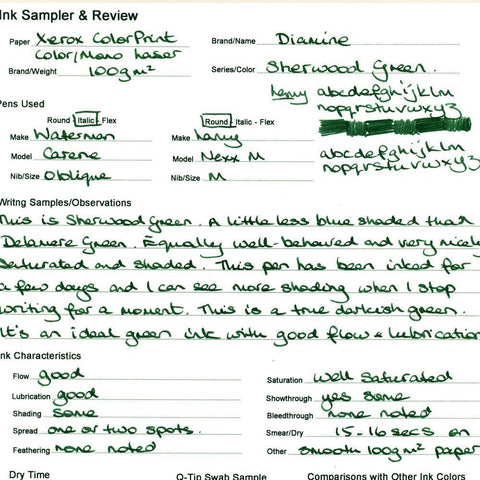 Ink Sampler & Review
Paper Xerox ColorPrint Brand/Name Diamine
Color/Mono Laser
Brand/Weight 100gm² Series/Color Sherwood Green.
Lamy abcdefghijklm
nopqrstuvwxyz
Pens Used
Round - Italic - Flex Round - Italic - Flex
Make Waterman Make Lamy abcdefghijklm
Model Carene Model Nexx M nopqrstuvwxyz
Nib/Size Oblique Nib/Size M
Writng Samples/Observations
This is Sherwood Green. A little less blue shaded that
Delamere Green. Equally well-behaved and very nicely
saturated and shaded. This pen has been inked for
a few days and I can see more shading when I stop
writing for a moment. This is a true darkish green.
It's an ideal green ink with good flow & lubrication
Ink Characteristics
Flow good Saturation well saturated
Lubrication good Showthrough yes some
Shading some Bleedthrough none noted
Spread one or two spots. Smear/Dry 15-16 secs on
Feathering none noted Other smooth 100gm² paper
Dry Time Q-Tip Swab Sample Comparisons with Other Ink Colors